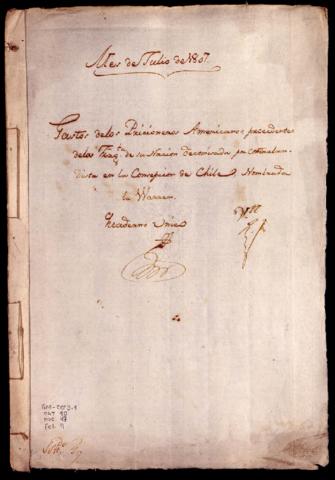 Mes de Julio de 1807
Gastos de los Pricioneros Americanos procedentes
de la Frag.ta de su Nacion decomisada por contraban-
dista en la Concepcion de Chile, Nombrada
la Warren.
Quaderno Unico